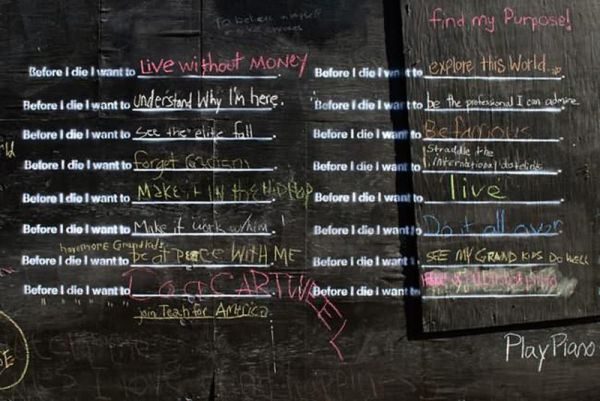 To be
find my Purpose!
Before I die I want to Live without MONEY
Before I die I want to understand Why I'm here.
Before I die I want to see the elite fall
Before I die I want to forget
Before I die I want to MAKE IT IN the HipHOP
Before I die I want to Make it work w/him
have more Grandkids
Before I die I want to be at peace WITH ME
Before I die I want to Do a CARTWHEEL
join Teach for AMERICA
Before I die I want to explore this World...
Before I die I want to be the professional I can admire
Before I die I want to Be famous
Before I die I want to Straddle the
international dateline
Before I die I want to live
Before I die I want to Do it all over
Before I die I want to SEE MY GRAND KIDS DO WELL
Before I die I want to
Play Piano